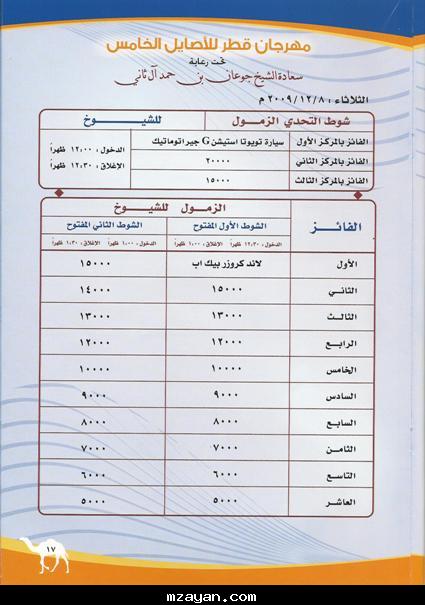 مهرجان قطر للأصايل الخامس
تحت رعاية
سعادة الشيخ جوعان بن حمد آل ثاني
الثلاثاء : ٢٠٠٩/١٢/٨ م
شوط التحدي الزمول للشيوخ
الفائز بالمركز الأول سيارة تويوتا استيشن G جير اتوماتيك الدخول : ١٢,٠٠ ظهراً
الفائز بالمركز الثاني ٢٠٠٠٠ الإغلاق : ١٢,٣٠ ظهراً
الفائز بالمركز الثالث ١٥٠٠٠
الفائز الزمول للشيوخ
الشوط الأول المفتوح الشوط الثاني المفتوح
الدخول : ١٢,٣٠ ظهراً الإغلاق : ١,٠٠ ظهراً الدخول : ١,٠٠ ظهراً الإغلاق : ١,٣٠ ظهراً
الأول لاند كروزر بيك اب ١٥٠٠٠
الثاني ١٥٠٠٠ ١٤٠٠٠
الثالث ١٣٠٠٠ ١٣٠٠٠
الرابع ١٢٠٠٠ ١٢٠٠٠
الخامس ١٠٠٠٠ ١٠٠٠٠
السادس ٩٠٠٠ ٩٠٠٠
السابع ٨٠٠٠ ٨٠٠٠
الثامن ٧٠٠٠ ٧٠٠٠
التاسع ٦٠٠٠ ٦٠٠٠
العاشر ٥٠٠٠ ٥٠٠٠
١٧
mzayan.com